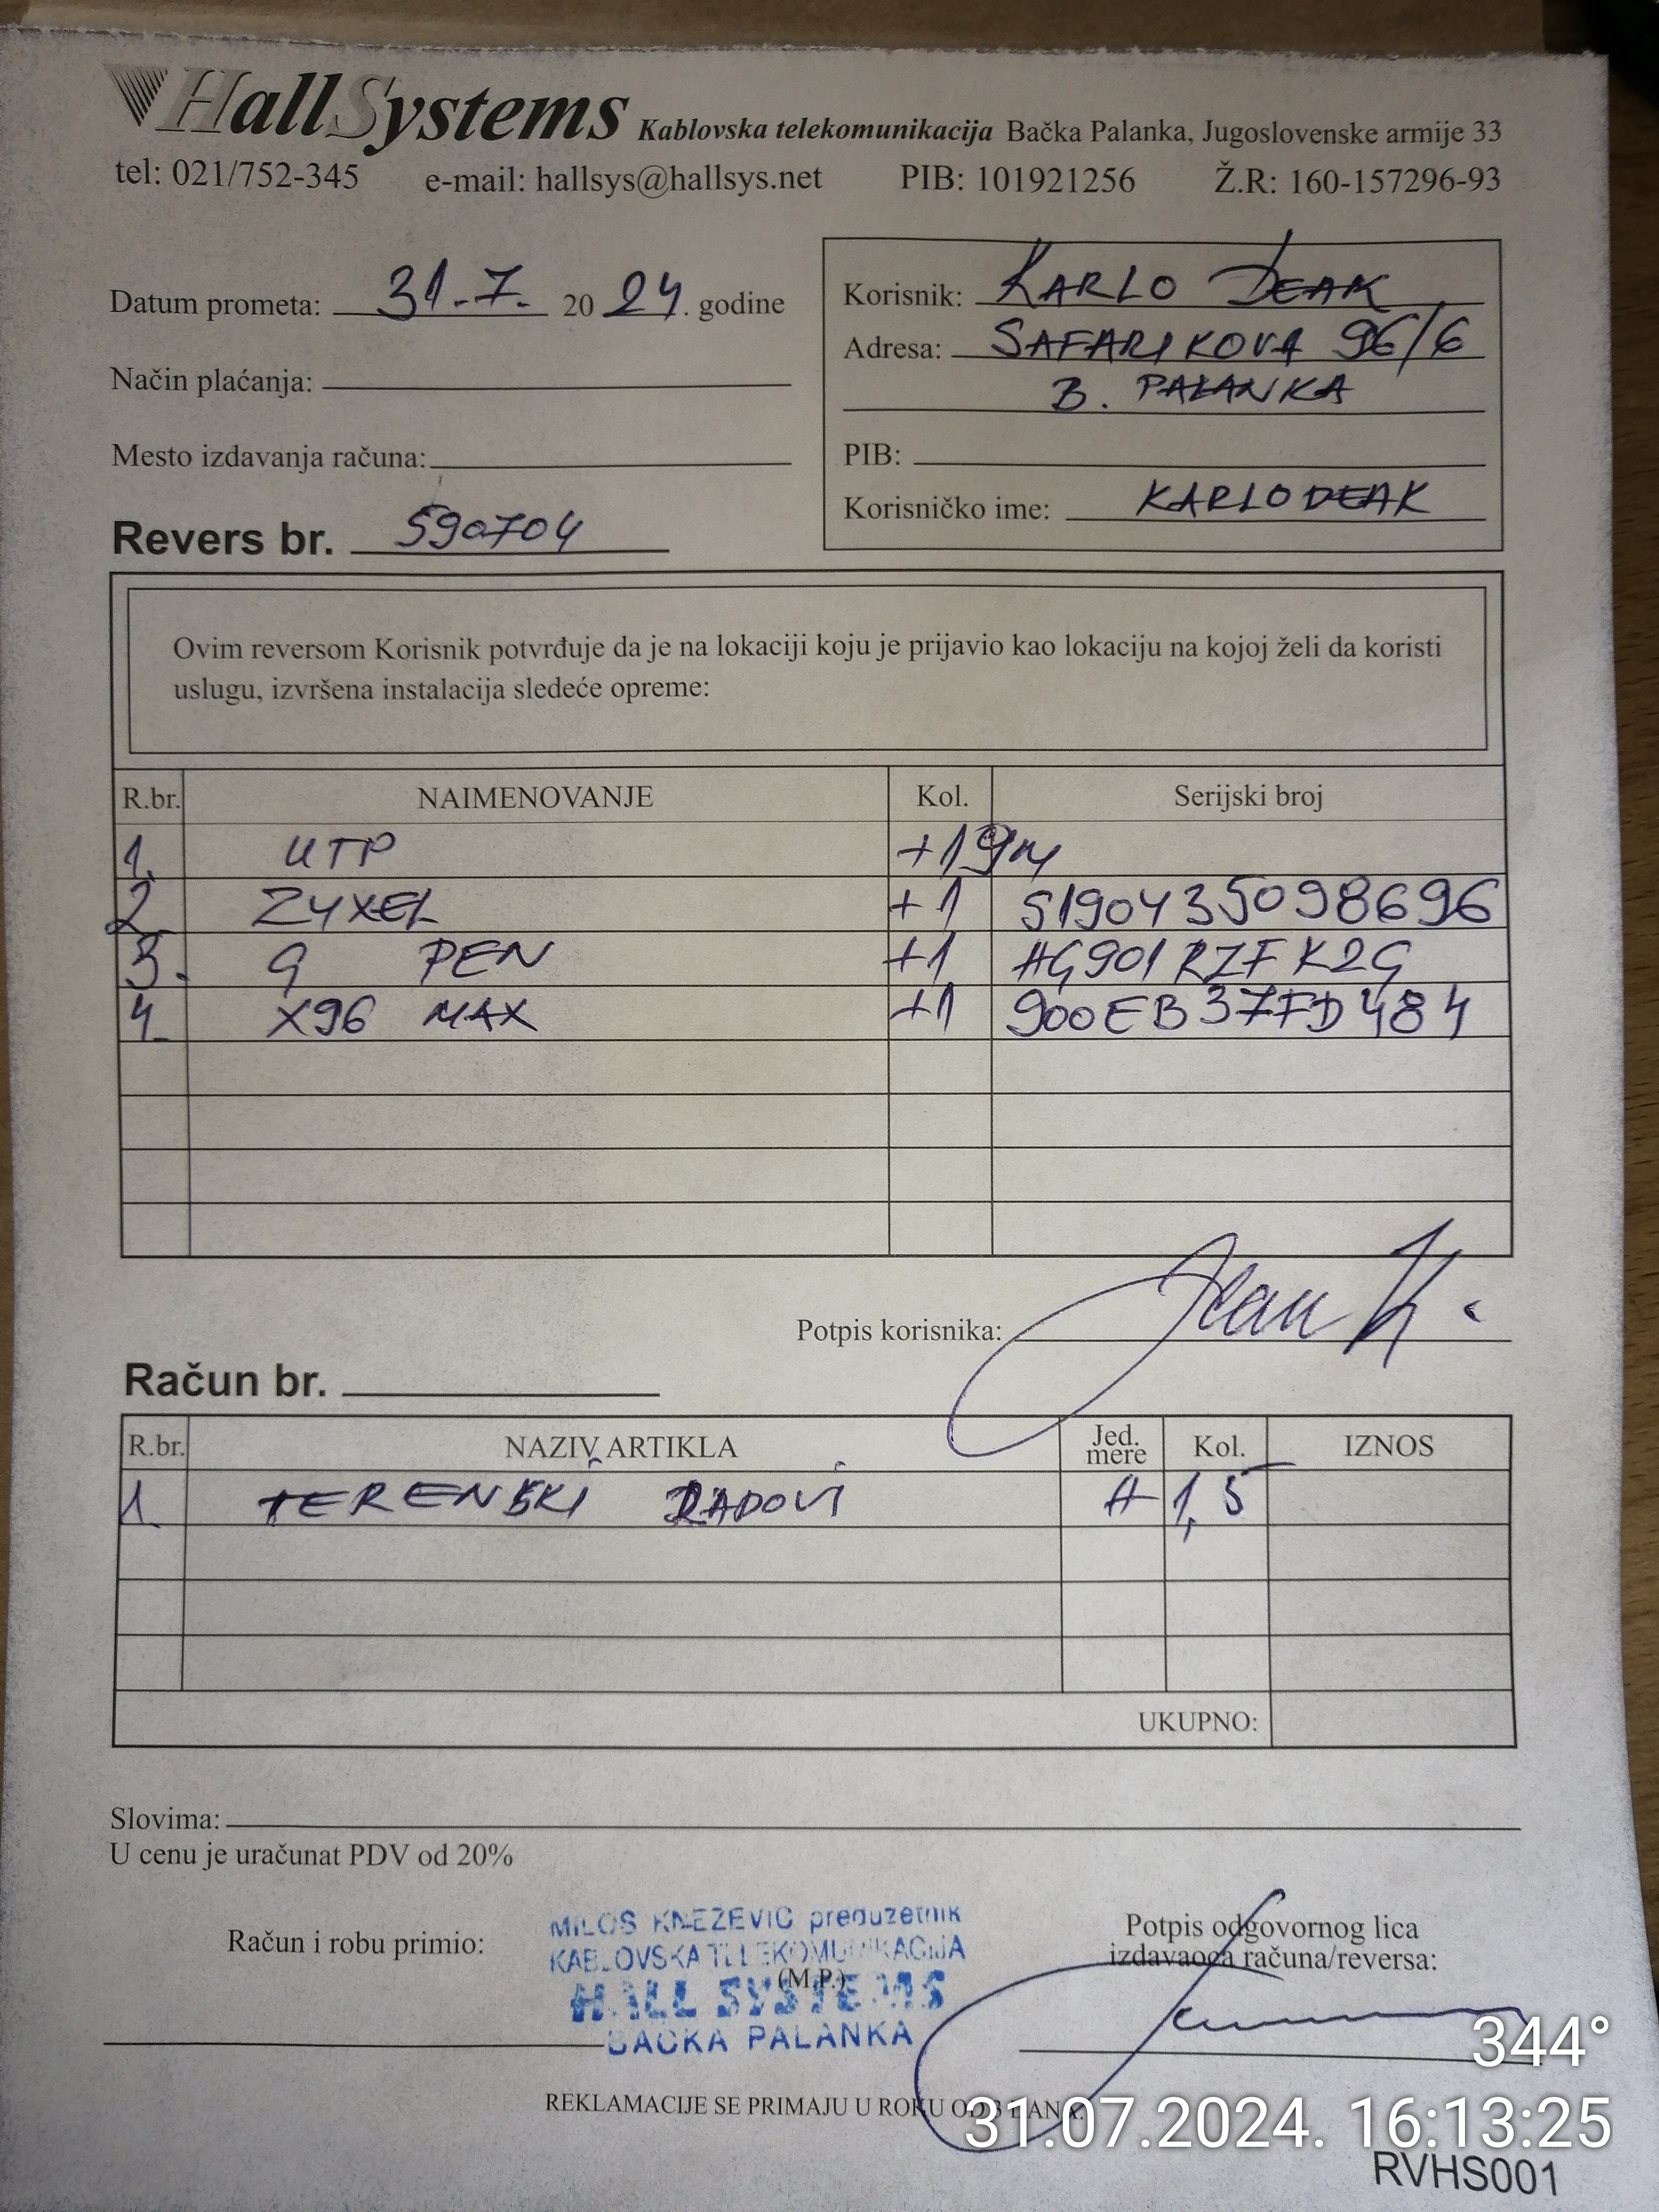 HallSystems Kablovska telekomunikacija Bačka Palanka, Jugoslovenske armije 33
tel: 021/752-345 e-mail: hallsys@hallsys.net PIB: 101921256 Ž.R: 160-157296-93
Datum prometa: 31.7. 2024. godine
Način plaćanja:
Mesto izdavanja računa:
Revers br. 590704
Korisnik: KARLO DEAK
Adresa: SAFARIKOVA 96/6
B. PALANKA
PIB:
Korisničko ime: KARLODEAK
Ovim reversom Korisnik potvrđuje da je na lokaciji koju je prijavio kao lokaciju na kojoj želi da koristi
uslugu, izvršena instalacija sledeće opreme:
R.br. NAIMENOVANJE Kol. Serijski broj
1. UTP +19m
2. ZYXEL +1 S190435098696
3. G PEN +1 HG901RZFK2G
4. X96 MAX +1 900EB37FD484
Potpis korisnika:
Račun br.
R.br. NAZIV ARTIKLA Jed. mere Kol. IZNOS
1. TERENSKI RADOVI H 1,5
UKUPNO:
Slovima:
U cenu je uračunat PDV od 20%
Račun i robu primio:
MILOS KNEZEVIC preduzetnik
KABLOVSKA TELEKOMUNIKACIJA
(M.P.)
HALL SYSTEMS
BACKA PALANKA
Potpis odgovornog lica
izdavaoca računa/reversa:
REKLAMACIJE SE PRIMAJU U ROKU OD 3 DANA.
344°
31.07.2024. 16:13:25
RVHS001